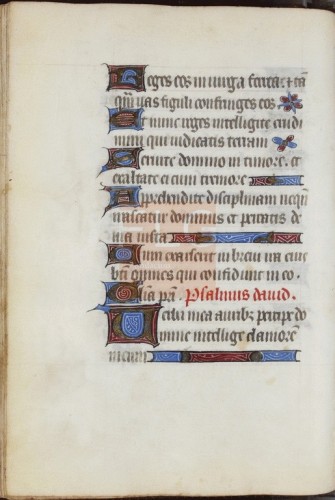 Reges eos in uirga ferrea: & tā
quā uas figuli confringes eos
Et nunc reges intelligite erudi
mini qui iudicatis terram
Seruite domino in timore. et
exultate ei cum tremore
Apprehendite disciplinam nequā
irascatur dominus et pereatis de
uia iusta
Cum exarserit in breui ira eius
bti omnes qui confidunt in eo.
Glia pri. Psalmus dauid.
Verba mea auribz percipe do
mine intellige clamorē
meum